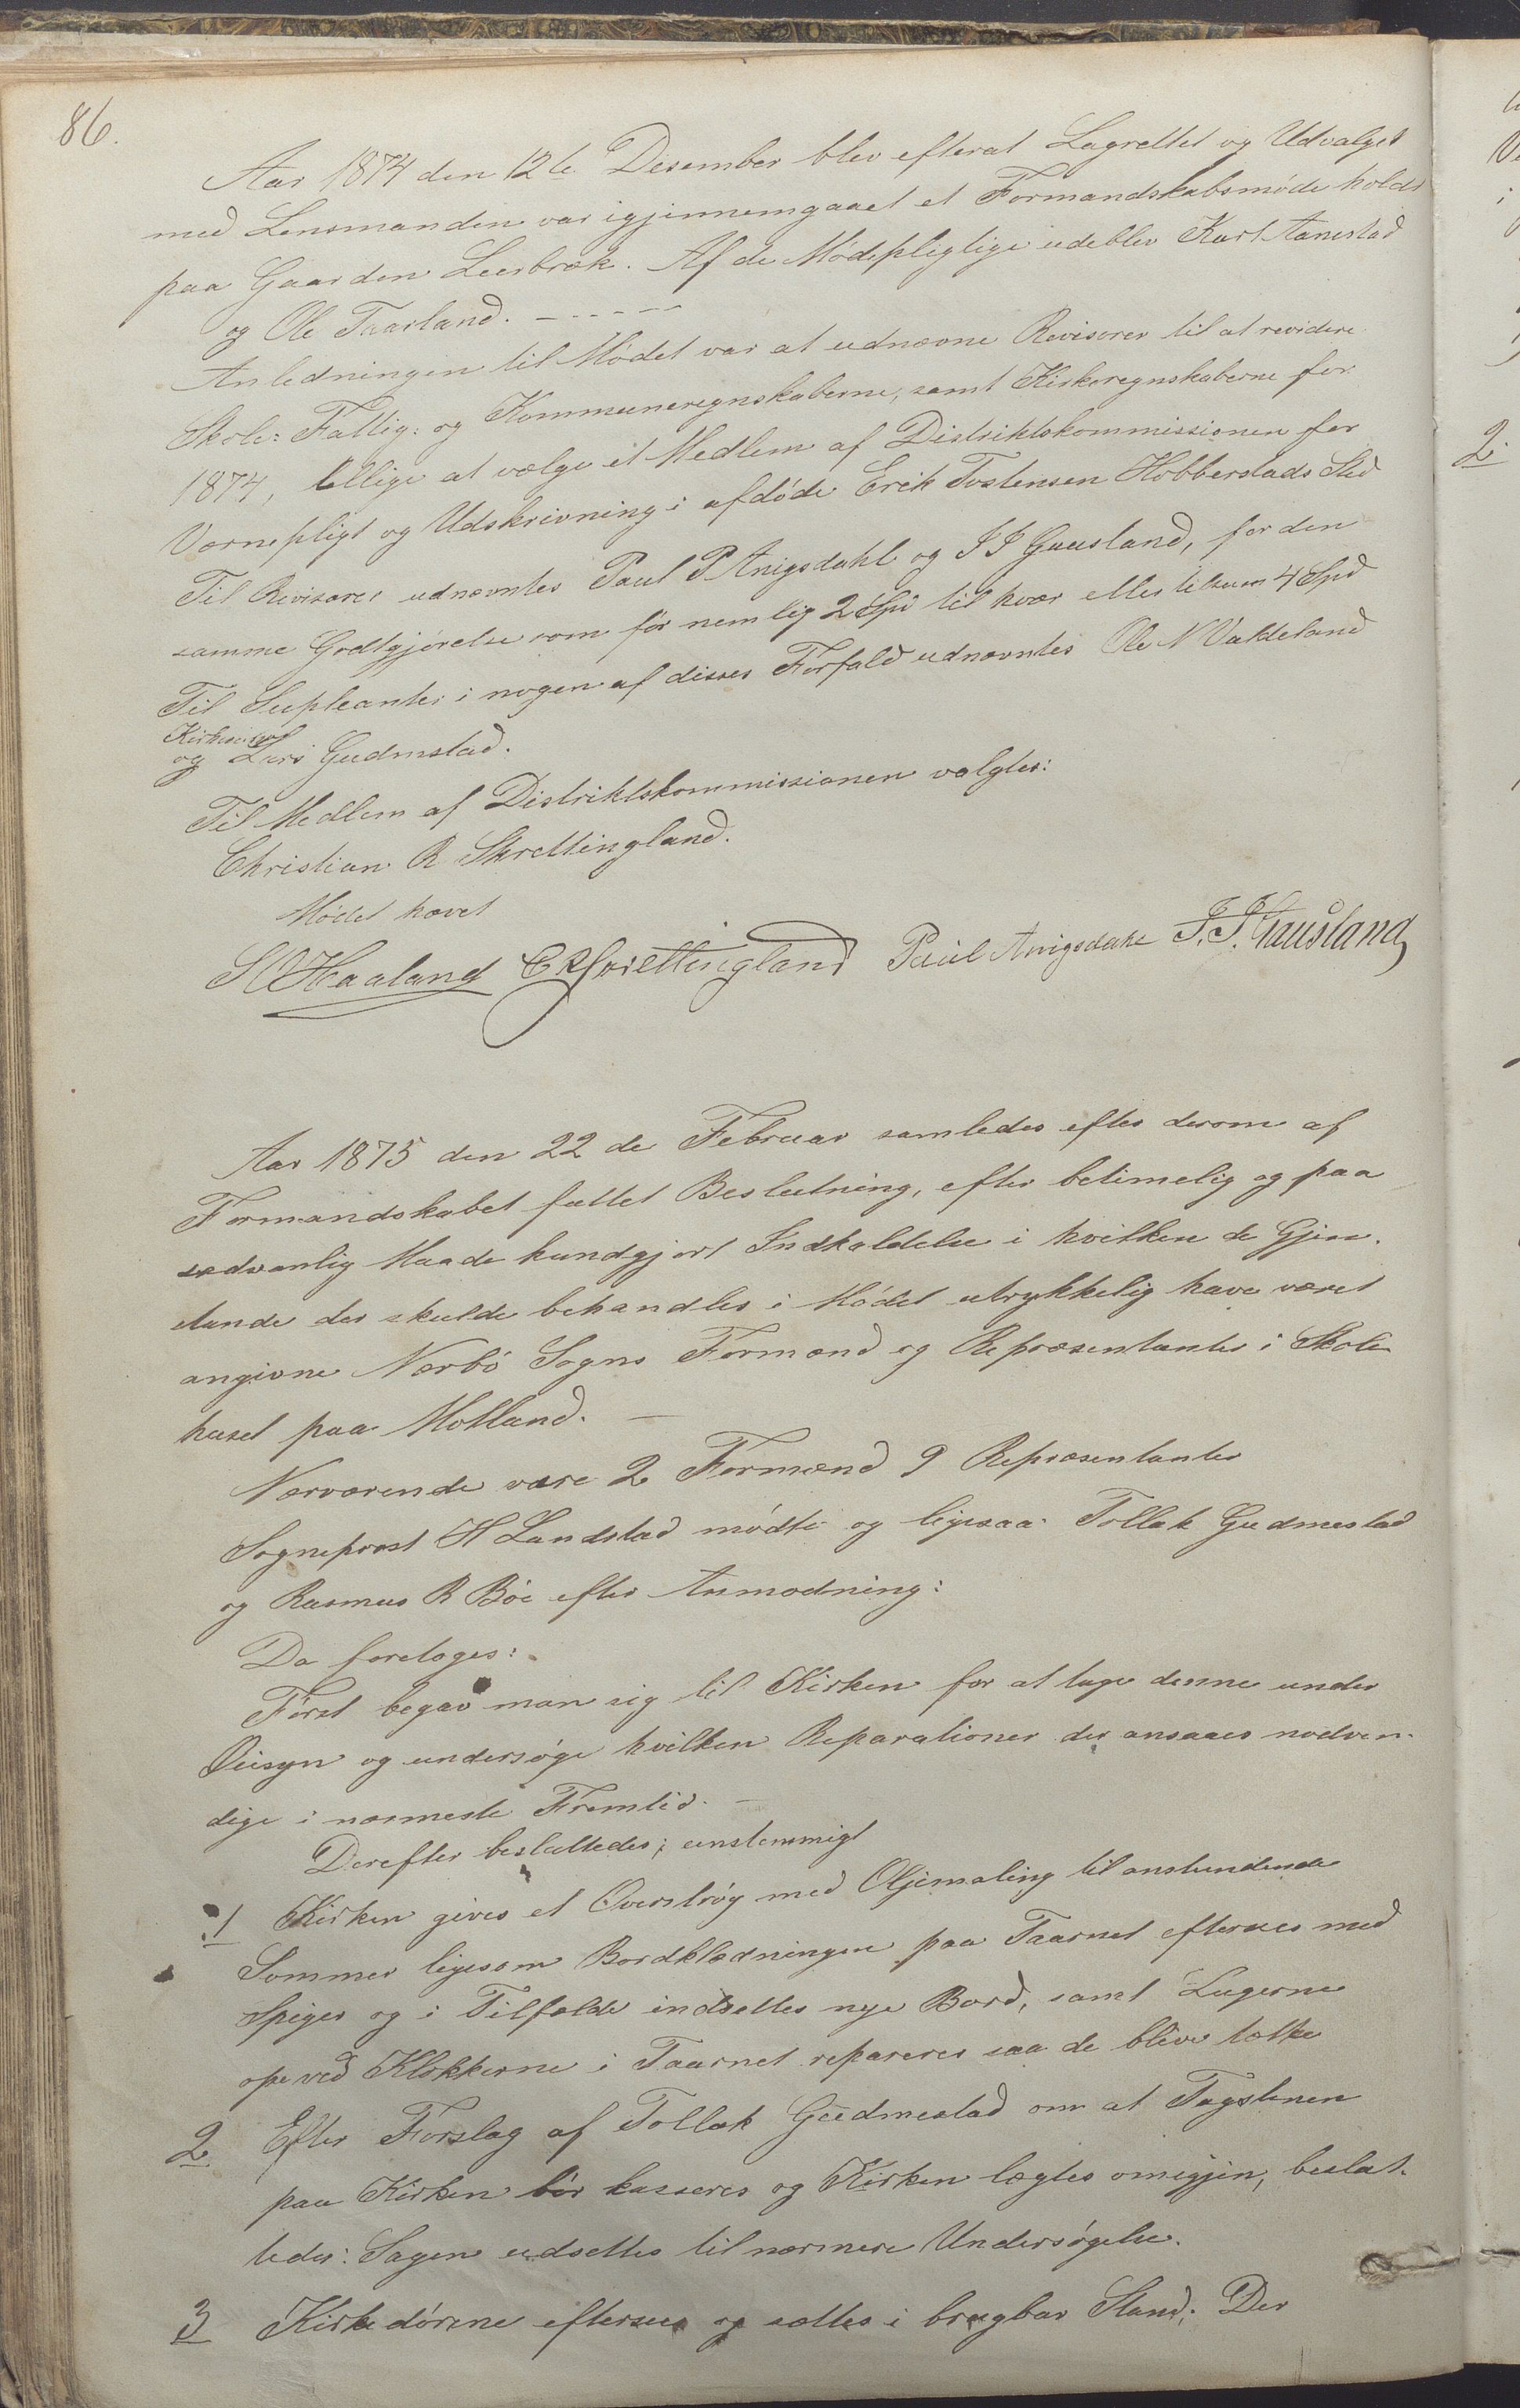 86.
Aar 1874 den 12te Desember blev efterat Lagrettet og Udvalget
med Lensmanden var igjennemgaaet et Formandskabsmöde holdt
paa Gaarden Leerbræk. Af de Mödepligtige udeblev Karl Aanestad
og Ole Taarland. - - - - -
Anledningen til Mödet var at udnævne Revisorer til at revidere
Skole: Fattig: og Kommuneregnskaberne, samt Kirkeregnskaberne for
1874, tillige at vælge et Medlem af Distriktskommissionen for
Værnepligt og Udskrivning i afdöde Erik Tostensen Hobberstads Sted
Til Revisorer udnævntes Paul P Anigsdahl og J J Gausland, for den
samme Godtgjörelse som för nemlig 2 Spd til hver eller tilsam 4 Spd
Til Supleanter i nogen af disses Forfald udnævntes Ole N Vatdeland
Kirkesanger
og Lars Gudmstad.
Til Medlem af Distriktskommissionen valgtes:
Christian R Skrettingland.
Mödet hævet
S O Haaland C R Skrettingland Paul Anigsdahl J. J. Gausland
Aar 1875 den 22 de Februar samledes efter derom af
Formandskabet fattet Beslutning, efter betimelig og paa
sædvanlig Maade kundgjort Indkaldelse i hvilken de Gjen-
stande der skulde behandles i Mödet utrykkelig have været
angivne Nærbö Sogns Formænd og Repræsentanter i Skole
huset paa Motland. —
Nærværende vare 2 Formænd 9 Repræsentanter
Sogneprest H Landstad mödte og ligesaa Tollak Gudmestad
og Rasmus R Böe efter Anmodning:
Da foretoges:
Först begav man sig til Kirken for at tage denne under
Öiesyn og undersöge hvilken Reparationer der ansaaes nødven-
dige i nærmeste Fremtid. —
Derefter besluttedes; enstemmigt
1 Kirken gives et Overströg med Oljemaling til anstundende
Sommer ligesom Bordklædningen paa Taarnet eftersees med
Spiger og i Tilfælde indsettes nye Bord, samt Lugerne
ope ved Klokkerne i Taarnet repareres saa de blive tætte
2 Efter Forslag af Tollak Gudmestad om at Tagstenen
paa Kirken bör kasseres og Kirken lægtes omigjen, beslut-
tedes: Sagen udsettes til nærmere Undersögelse.
3 Kirkedörene eftersees og sættes i brugbar Stand; Der
2.